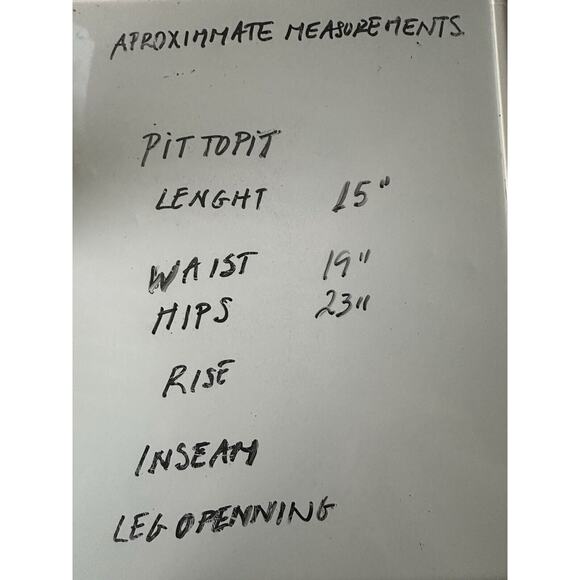 APROXIMMATE MEASUREMENTS.
PiT TO PiT
LENGHT 15"
WAIST 19"
HIPS 23"
RISE
INSEAM
LEG OPENNING